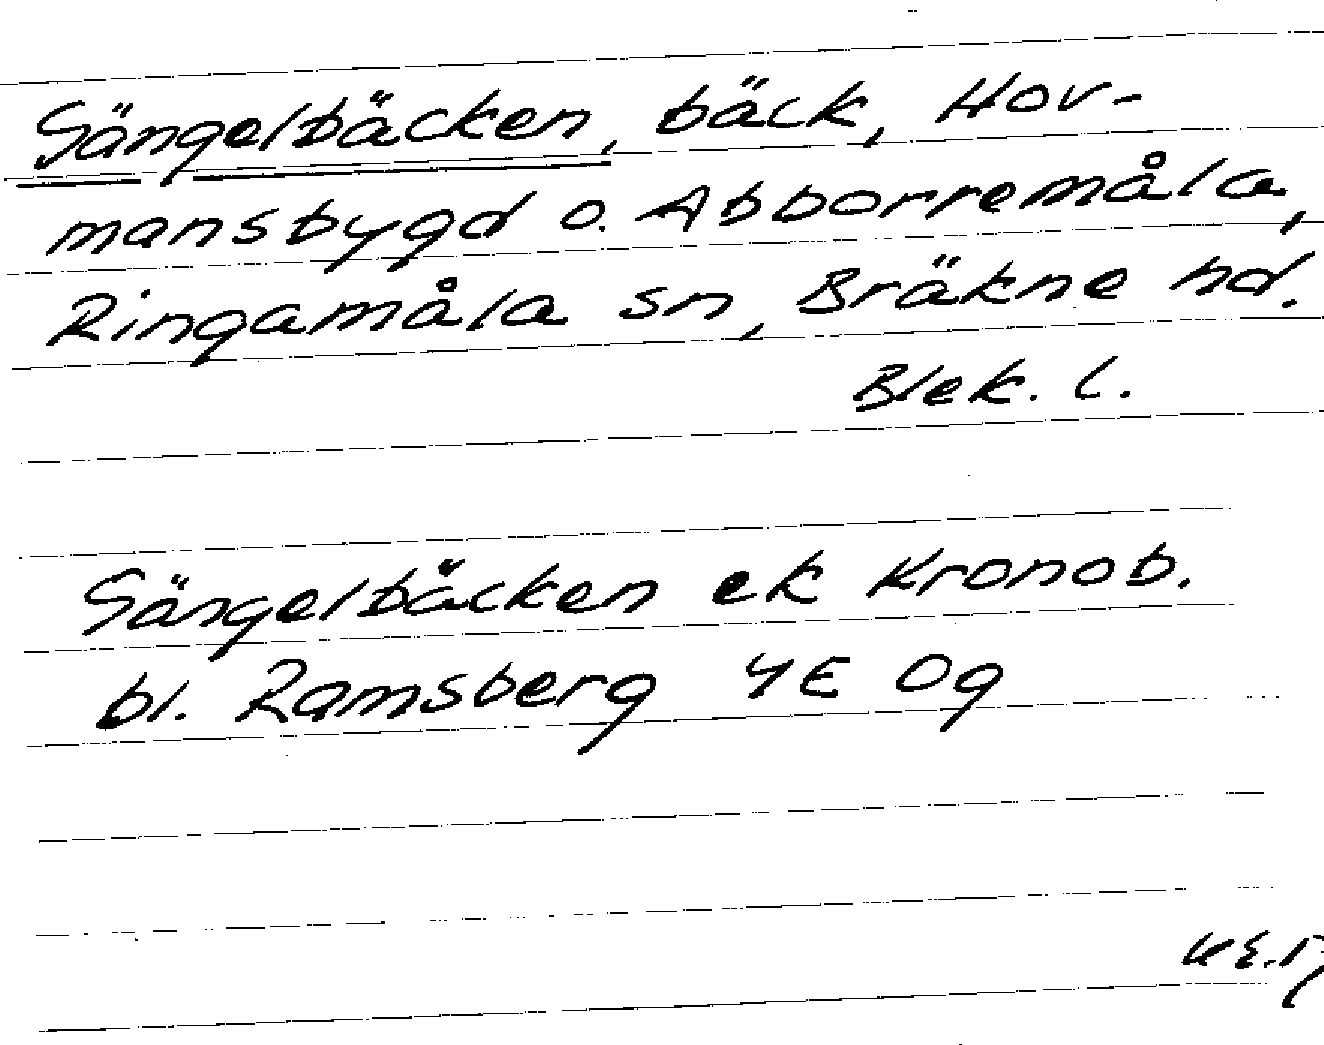 Sängelbäcken, bäck, Hov-
mansbygd o. Abborremåla,
Ringamåla sn, Bräkne hd.
Blek. l.
Sängelbäcken ek Kronob.
bl. Ramsberg 4E 0g